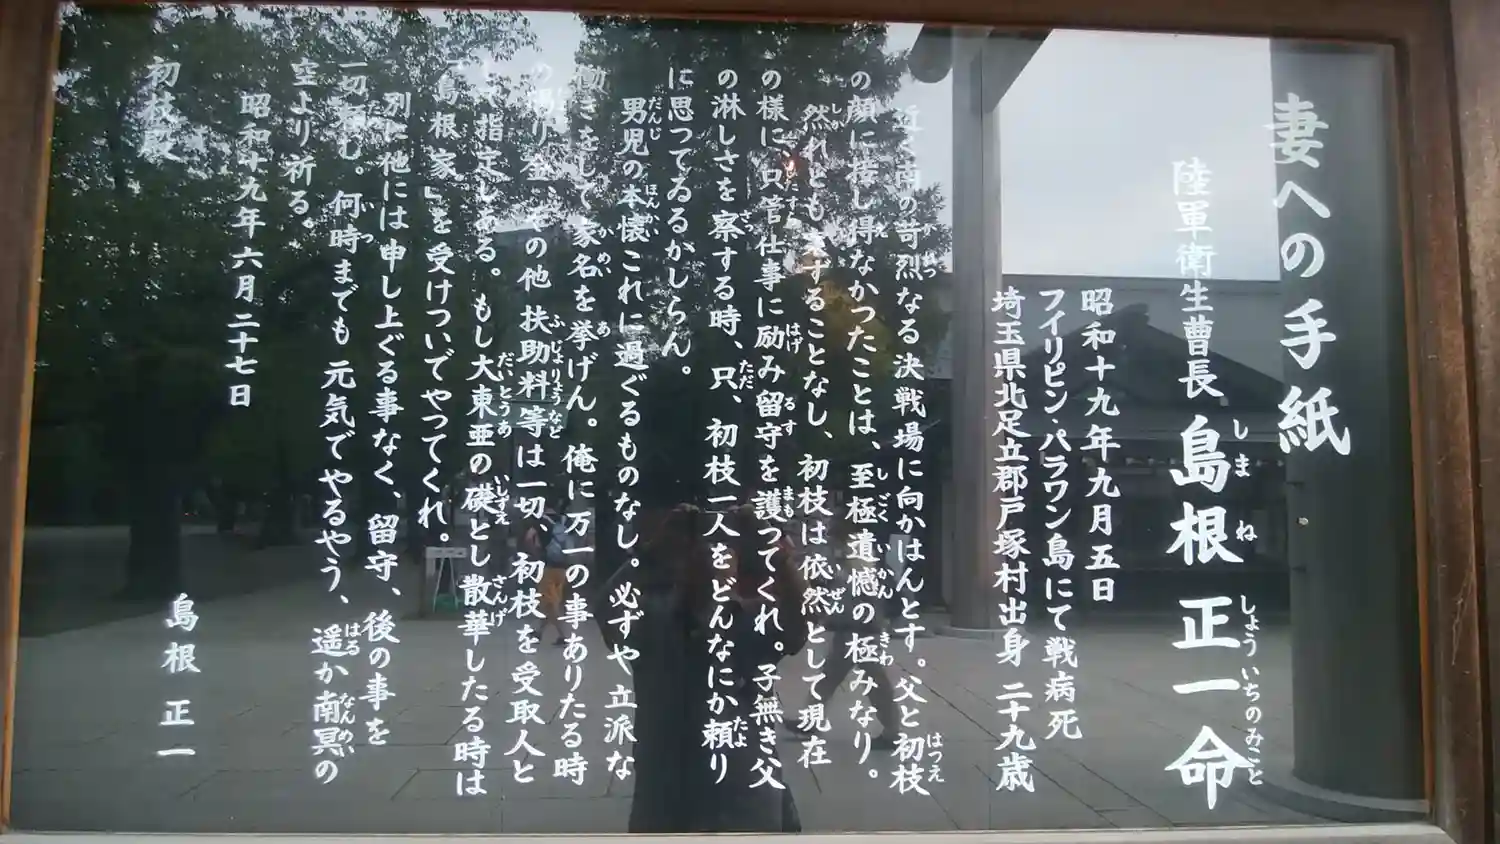 妻への手紙
陸軍衛生曹長 島根正一命
しまね しょういちのみこと
昭和十九年九月五日
フィリピン・パラワン島にて戦病死
埼玉県北足立郡戸塚村出身 二十九歳
近く南の苛烈なる決戦場に向かはんとす。父と初枝
の顔に接し得なかつたことは、至極遺憾の極みなり。
然れども案ずることなし、初枝は依然として現在
の様に、只管仕事に励み留守を護つてくれ。子無き父
の淋しさを察する時、只、初枝一人をどんなにか頼り
に思つてゐるがしらん。
男児の本懐これに過ぐるものなし。必ずや立派な
働きをして家名を挙げん。俺に万一の事ありたる時
の賜り金、その他扶助料等は一切、初枝を受取人と
して指定しある。もし大東亜の礎とし散華したる時は
「島根家」を受けついでやつてくれ。
別に他には申し上ぐる事なく、留守、後の事を
一切頼む。何時までも元気でやるやう、遥か南冥の
空より祈る。
昭和十九年六月二十七日
島根正一
初枝殿